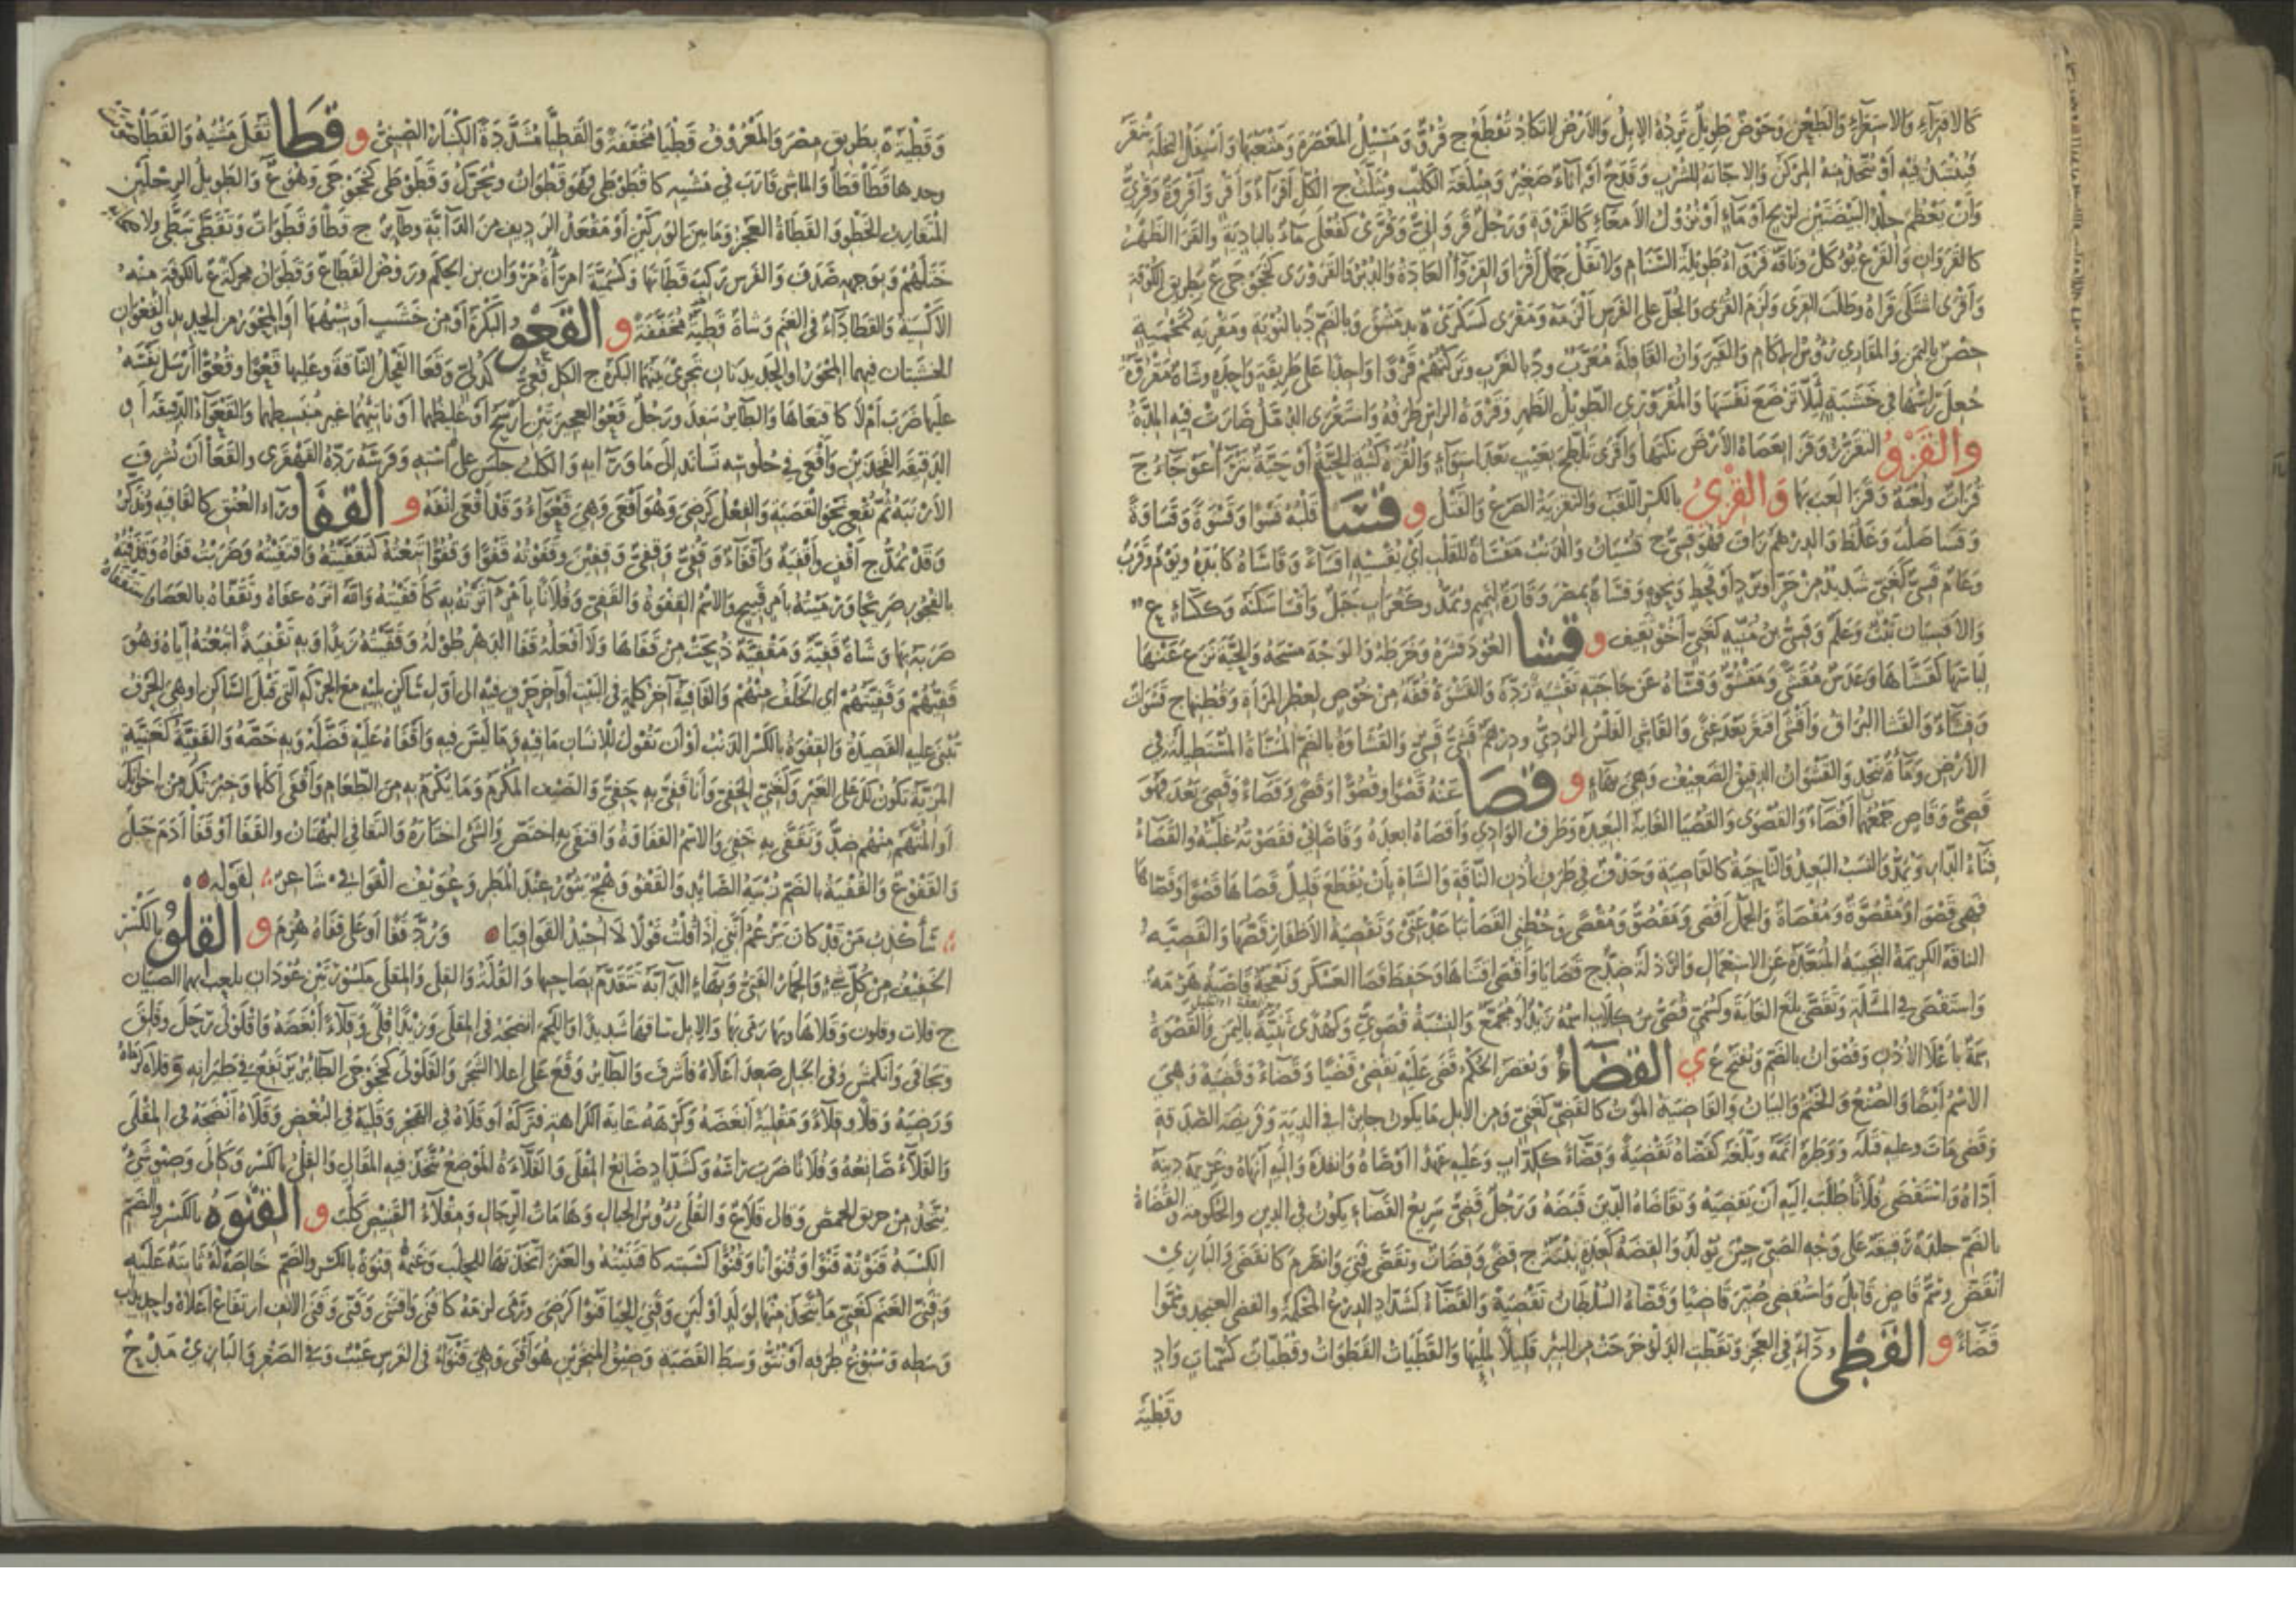 كالافتراء والاستقراء والطعن وحوض طويل ترده الابل والأرض لا تكاد تقطع ج قروّ ومسيل المعصرة ومثعبها وأسفل النخلة ينقر
فينتبذ فيه أو يتخذ منه المركن والاجانة للشرب وقدح أو اناء صغير وميلغة الكلب ويثلث ج الكل أقراء وأقر وأقروة وقريّ
وأن يعظم جلد البيضتين لريح أو ماء أو نزول الأمعاء كالقروة ورجل قرواني وقروى كفعلى ماء بالبادية والقرا الظهر
كالقروان والقرع يؤكل وناقة قرواء طويلة السنام ولا تقل جمل أقرا والقرواء العادة والدبر والقرورى كخجوجى ع بطريق الكوفة
وأقرى اشتكى قراه وطلب القرى ولزم القرى والجل على الفرس ألزمه ومقرى كسكرى ة بدمشق وبالضم د بالنوبة ومقرية كمحمية
حصن باليمن والمقاري رؤوس الاكام والقيروان القافلة معرب ود بالغرب وتركتهم قروا واحدا على طريقة واحدة وشاة مقروة
جعل رأسها في خشبة لئلا ترضع نفسها والمقروري الطويل الظهر وقروة الرأس طرفه واستقرى الدمل صارت فيه المدة
والقزو التقزز وقزا بعصاه الأرض نكتها وأقزى تلطخ بعيب بعد استواء والقزة كثبة الحية أو حية بتراء عوجاء ج
قزات ولعبة وقزا لعب بها والقزي بالكسر اللقب والتقزية الصرع والقتل و قسا قلبه قسوا وقسوة وقساوة
وقساء صلب وغلظ والدرهم زاف فهو قسي ج قسيان والذنب مقساة للقلب أي يقسيه اقساء وقاساه كابده ويوم وقرب
وعام قسي كغني شديد من حر أو برد أو قحط ونحوه وقساء ة بمصر وقارة لتميم ويمد وكغراب جبل وأقسا سكنه وككساء ع
والأقسيان نبت وعلم وقسي بن منبه كغني أخو ثقيف و قشا العود قشره وخرطه والوجه مسحه والحية نزع عنها
لباسها كقشاها وعدس مقشى ومقشو وقشاه عن حاجته تقشية رده والقشوة قفة من خوص لعطر المرأة وقطنها ج قشوات
وقشاء والقشا البزاق وأقشى افتقر بعد غنى والقاشي الفلس الردي ودرهم قشي قسي والقشاوة بالضم المسناة المستطيلة في
الأرض وماءة بنجد والقشوان الدقيق الضعيف وهي بهاء و قصا عنه قصوا وقصوا وقصا وقصاء وقصي بعد فهو
قصي وقاص جمعهما أقصاء والقصوى والقصيا الغاية البعيدة وطرف الوادي وأقصاه أبعده وقاصاني فقصوته غلبته والقصا
فناء الدار ويمد والنسب البعيد والناحية كالقاصية وحذف في طرف أذن الناقة والشاة بأن يقطع قليل قصاها قصوا وقصاها
فهي قصواء ومقصوة ومقصاة والجمل أقصى ومقصو ومقصى وحطني القصا تباعد عني وتقصية الأظفار قصها والقصية
الناقة الكريمة النجيبة المتعدة عن الاستعمال والرذلة ضد ج قصايا وأقصى اقتناها وحفظ قصا العسكر ونعجة قاصية هرمة
واستقصى في المسألة وتقصى بلغ الغاية وكسمي قصي بن كلاب اسمه زيد أو مجمع والنسبة قصوي وكهدى ثنية باليمن والقصوة
سمة بأعلا الأذن وقصوان بالضم ويفتح ع ي القضاء ويقصر الحكم قضى عليه يقضي قضيا وقضاء وقضية وهي
الاسم أيضا والصنع والحتم والبيان والقاضية الموت كالقضي كغني ومن الابل ما يكون جائزا في الدية وفريضة الصدقة
وقضى مات وعليه قتله ووطره أتمه وبلغه كقضاه تقضية وقضاء ككذاب وعليه عهدا أوصاه وأنفذه واليه أنهاه وغريمه دينه
أداه واستقضى فلانا طلب اليه أن يقضيه وتقاضاه الدين قبضه ورجل قضي سريع القضاء يكون في الدين والحكومة والقضاة
بالضم جلدة رقيقة على وجه الصبي حين يولد والقضة كعدة نبتة ج قضى وقضات وتقضى فني وانصرم كانقضى والبازي
انقض وسم قاض قاتل واستقضي صير قاضيا وقضاه السلطان تقضية والقضاء كشداد الدرع المحكمة والقضى العنجد وسموا
قضاء و القطى داء في العجز وتقطت الدلو خرجت من البئر قليلا قليلا والقطيات القطوات وقطيات كسميات واد
وقطية
وقطية ة بطريق مصر والمعروف قطيا مخففة والقطيا مشددة الكبار الصبي و قطا ثقل مشيه والقطا صوتت
وحدها قطا قطا والماشي قارب في مشيه كاقطوطى فهو قطوان ويحرك وقطوطى كخجوجى وهو ع والطويل الرجلين
المتقارب الخطو والقطاة العجز وما بين الوركين أو مقعد الرديف من الدابة وطائر ج قطا وقطوات وتقطى تبطى ولأصحابه
ختلهم وبوجهه صدف والفرس ركب قطاتها وكسمية امرأة مروان بن الحكم وروض القطا ع وقطوان محركة ع بالكوفة منه
الأكسية والقطا داء في الغنم وشاة قطية مخففة و القعو البكرة أو من خشب أو شبهها أو المحور من الحديد والقعوان
الخشبتان فيهما المحور أو الحديدتان تجري بينهما البكرة ج الكل قعي كدلي وقعا الفحل الناقة وعليها قعوا وقعوا أرسل نفسه
عليها ضرب أم لا كاقتعاها والطائر سفد ورجل قعو العجيزتين أرسح أو غليظهما أو ناتئهما غير منبسطهما والقعواء الدقيقة أو
الدقيقة الفخذين وأقعى في جلوسه تساند إلى ما وراءه والكلب جلس على استه وفرسه رده القهقرى والقعا أن تشرف
الأرنبة ثم تقعي نحو القصبة والفعل كرضي وهو أقعى وهي قعواء وقد أقعى أنفه و القفا وراء العنق كالقافية ويذكر
وقد يمد ج أقف وأقفية وأقفاء وقفي وقفي وقفين وقفوته قفوا وقفوا تبعته كتقفيته واقتفيته وضربت قفاه وقذفته
بالفجور صريحا ورميته بأمر قبيح والاسم القفوة والقفي وفلانا بأمر آثرته به كأقفيته والله أثره عفاه وتقفاه بالعصا واستقفاه
ضربه بها وشاة قفية ومقفية ذبحت من قفاها ولا أفعله قفا الدهر طوله وقفيته زيدا وبه تقفية أتبعته اياه وهو
قفيهم وقفيتهم أي الخلف منهم والقافية آخر كلمة في البيت أو آخر حرف فيه إلى أول ساكن يليه مع الحركة التي قبل الساكن أو هي الحرف
تبنى عليه القصيدة والقفوة بالكسر الذنب أو أن تقول للانسان ما فيه وما ليس فيه وأقفاه عليه فضله وبه خصه والقفية كغنية
المزية تكون لك على الغير وكغني الحفي وأنا قفي به حفي والضيف المكرم وما يكرم به من الطعام وأقفى أكلها وخيرتك من اخوانك
أو المتهم منهم ضد وتقفى به حفي والاسم القفاوة واقتفى به اختص والشيء اختاره والتقافي البهتان والقفا أو قفا آدم جبل
والقفو ع والقفية بالضم زبية الصائد والقفو وهج يثور عند المطر وعويف القوافي شاعر لقوله
سأكذب من قد كان يزعم أنني إذا قلت قولا لا أجيد القوافيا ورد قفا أو على قفاه هرم و القلو بالكسر
الخفيف من كل شيء والحمار الفتي وبهاء الدابة تتقدم بصاحبها والقلة والقلى والمقلى مكسورتين عودان يلعب بهما الصبيان
ج قلات وقلون وقلاها وبها رمى بها والابل ساقها شديدا واللحم أنضجه في المقلى وزيدا قلى وقلاء أبغضه واقلولى رحل وقلق
وتجافى وانكمش وفي الجبل صعد أعلاه فأشرف والطائر وقع على أعلا الشجر والقلولى كخجوجى الطائر يرتفع في طيرانه وقلاه كرماه
ورضيه وقلا وقلاء ومقلية أبغضه وكرهه غاية الكراهة فتركه أو قلاه في الهجر وقليه في البغض وقلاه أنضجه في المقلى
والقلاء صانعه وفلانا ضرب رأسه وكشداد صانع المقلى والقلاءة الموضع تتخذ فيه المقالي والقلي بالكسر وكالى وصنو شيء
يتخذ من حريق الحمض وقالي قلا ع والقلى رؤوس الجبال وهامات الرجال ومقلاء القنيص كلب و القنوة بالكسر والضم
الكسبة قنوته قنوا وقنوانا وقنوا كسبته كاقتنيته والعنز اتخذتها للحلب وغنمه قنوة بالكسر والضم خالصة له ثابتة عليه
وقني الغنم كغني ما يتخذ منها لولد أو لبن وقني الحيا قنوا كرضي ورمى لزمه كأقنى واقتنى وقنى وقنى الأنف ارتفاع أعلاه واحديداب
وسطه وسبوغ طرفه أو نتو وسط القصبة وضيق المنخرين هو أقنى وهي قنواء في الفرس عيب وفي الصقر والبازي مدح